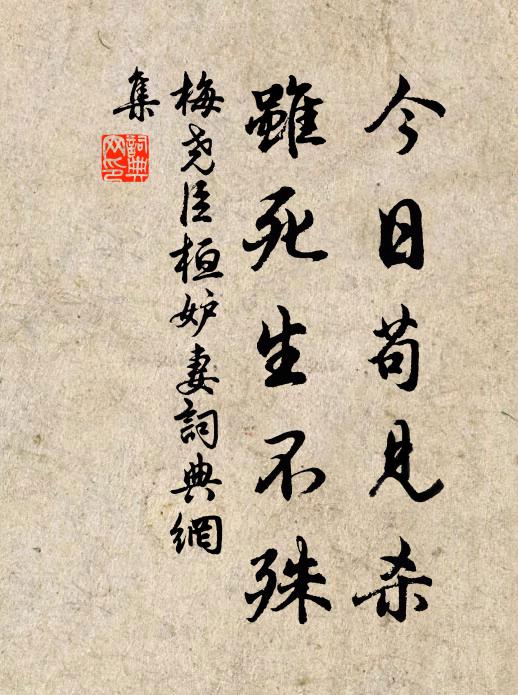 今日苟見杀
雖死生不殊
梅堯臣桓妒妻詞典網
集
詞典
网印